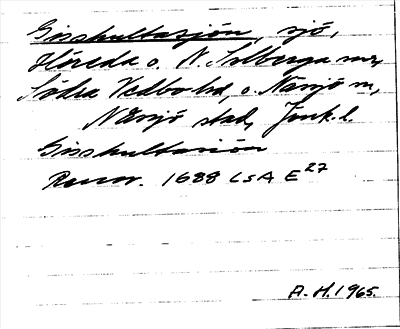 Gisshultasjön, sjö,
Fliseda o. N. Solberga snr,
Södra Vedbo hd, o. Nässjö sn,
Nässjö stad, Jönk. l.
Gisshultasiön
Renov. 1688 LSA E27
A. H. 1965.